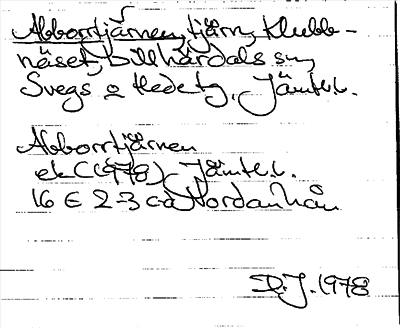 Abborrtjärnen, tjärn, Klubb-
näset, Lillhärdals sn,
Svegs o Hede tg, Jämtl.l.
Abborrtjärnen
ek C (1978) Jämtl.l.
16 E 2-3 c-d Nordanhån
D.J. 1978